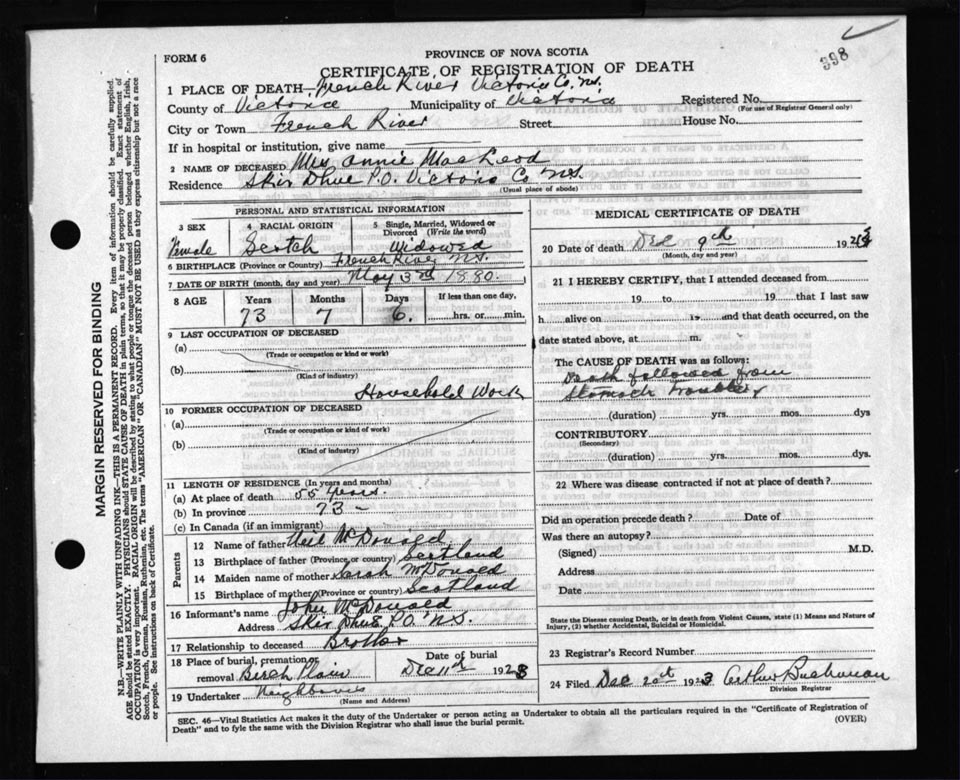 398
FORM 6
PROVINCE OF NOVA SCOTIA
CERTIFICATE OF REGISTRATION OF DEATH
1 PLACE OF DEATH French River Victoria Co. N.S.
County of Victoria Municipality of Victoria Registered No.
(For use of Registrar General only)
City or Town French River Street House No.
If in hospital or institution, give name
2 NAME OF DECEASED Mrs Annie MacLeod
Residence Skir Dhue P.O. Victoria Co N.S.
(Usual place of abode)
PERSONAL AND STATISTICAL INFORMATION
3 SEX 4 RACIAL ORIGIN 5 Single, Married, Widowed or Divorced (Write the word)
Female Scotch Widowed
6 BIRTHPLACE (Province or Country) French River N.S.
7 DATE OF BIRTH (month, day and year) May 3rd 1880.
8 AGE Years Months Days If less than one day,
73 7 6. hrs. or min.
9 LAST OCCUPATION OF DECEASED
(a)
(Trade or occupation or kind or work)
(b)
(Kind of industry)
Household Work
10 FORMER OCCUPATION OF DECEASED
(a)
(Trade or occupation or kind of work)
(b)
(Kind of industry)
11 LENGTH OF RESIDENCE (In years and months)
(a) At place of death 55 years.
(b) In province 73 -
(c) In Canada (if an immigrant)
Parents
12 Name of father Neil McDonald
13 Birthplace of father (Province or country) Scotland
14 Maiden name of mother Sarah McDonald
15 Birthplace of mother (Province or country) Scotland
16 Informant's name John McDonald
Address Skir Dhue P.O. N.S.
17 Relationship to deceased Brother
18 Place of burial, cremation or removal Birch Plain Date of burial Dec 11th 1923
19 Undertaker Neighbours
(Name and Address)
MEDICAL CERTIFICATE OF DEATH
20 Date of death Dec 9th 1923
(Month, day and year)
21 I HEREBY CERTIFY, that I attended deceased from
19 to 19 that I last saw
h alive on 19 and that death occurred, on the
date stated above, at m.
The CAUSE OF DEATH was as follows:
Death followed from
Stomach trouble
(duration) yrs. mos. dys
CONTRIBUTORY
(Secondary)
(duration) yrs. mos. dys.
22 Where was disease contracted if not at place of death?
Did an operation precede death? Date of
Was there an autopsy?
(Signed) M.D.
Address
Date
State the Disease causing Death, or in death from Violent Causes, state (1) Means and Nature of Injury, (2) whether Accidental, Suicidal or Homicidal.
23 Registrar's Record Number
24 Filed Dec 20th 1923 Arthur Buchanan
Division Registrar
SEC. 46—Vital Statistics Act makes it the duty of the Undertaker or person acting as Undertaker to obtain all the particulars required in the "Certificate of Registration of
Death" and to fyle the same with the Division Registrar who shall issue the burial permit.
(OVER)
MARGIN RESERVED FOR BINDING
N.B.—WRITE PLAINLY WITH UNFADING INK.—THIS IS A PERMANENT RECORD. Every item of information should be carefully supplied.
AGE should be stated EXACTLY. PHYSICIANS should STATE CAUSE OF DEATH in plain terms, so that it may be properly classified. Exact statement of
OCCUPATION is very important. RACIAL ORIGIN will be described by stating to what people or tongue the deceased person belonged whether English, Irish,
Scotch, French, German, Russian, Ruthenian, etc. The terms "AMERICAN" or "CANADIAN" MUST NOT BE USED as they express citizenship but not a race
or people. See instructions on back of Certificate.